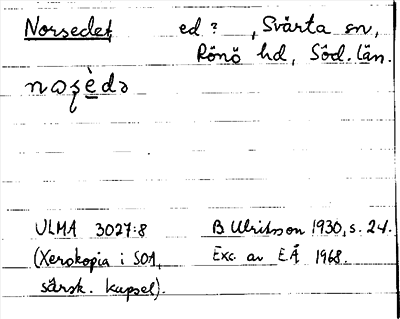 Norsedet ed ? , Svärta sn,
Rönö hd, Söd. län.
ULMA 3027:8 B Ulriksson 1930, s. 24.
(Xerokopia i SOA, Exc. av E.Å 1968.
särsk. kapsel).